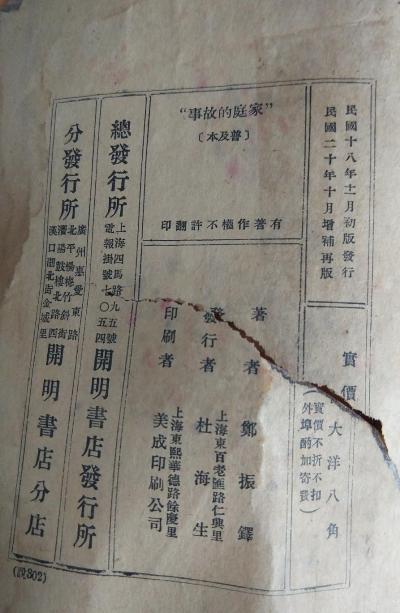 民國十八年十一月初版發行
民國二十年十月增補再版
實價大洋八角
(實價不折不扣
外埠酌加寄費)
“家庭的故事”
〔普及本〕
有著作權不許翻印
著者 鄭振鐸
發行者 杜海生
上海東百老匯路仁興里
印刷者 美成印刷公司
上海東熙華德路餘慶里
總發行所
上海四馬路九五號
電報掛號七〇五四
開明書店發行所
分發行所
廣州惠愛東路
北平楊梅竹斜街
瀋陽鼓樓北路西
漢口湖北街金城里
開明書店分店
(說302)